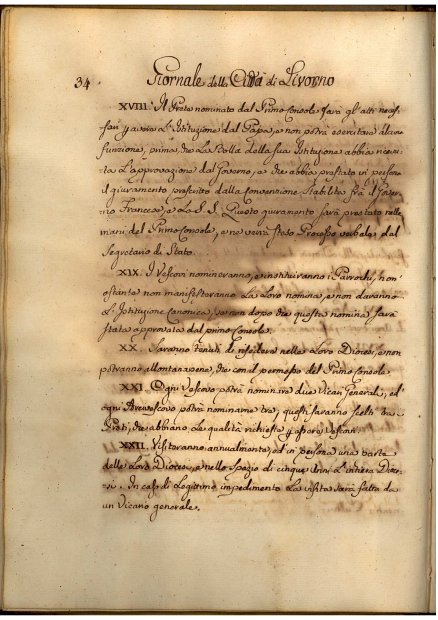 34. Giornale della Città di Livorno
XVIII. Il Prete nominato dal Primo Console farà gli atti neces-
sarj p aver l'Istituzione dal Papa, e non potrà esercitare alcuna
funzione, prima, che La Bolla della sua Istituzione abbia ricevu-
ta L'approvazione dal Governo, e che abbia prestato in persona
il giuramento prescritto dalla Convenzione stabilita frà il Gover-
no Francese, e La S. S. Questo giuramento sarà prestato nelle
mani del Primo Console, e ne verrà steso Processo verbale dal
Segretario di Stato.
XIX. I Vescovi nomineranno, e instituiranno i Parrochi, non
ostante non manifesteranno La Loro nomina, e non daranno
L'Istituzione canonica, se non dopo che questa nomina sarà
stata approvata dal primo Console.
XX. Saranno tenuti di risedere nelle Loro Diocesi, e non
potranno allontanarsene, che con il permesso del Primo Console
XXI. Ogni Vescovo potrà nominare due Vicarj Generali, ed
ogni Arcivescovo potrà nominarne tre, questi saranno scelti tra
Preti, che abbano Le qualità richieste p essere Vescovi.
XXII. Visiteranno annualmente, ed in persona una parte
delle Loro Diocesi, e nello spazio di cinque Anni L'intiera Dioce-
si. In caso di Legittimo impedimento La visita sarà fatta da
un Vicario generale.